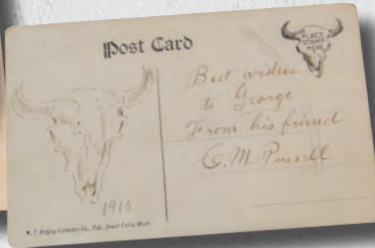 Post Card
PLACE
STAMP
HERE
Best wishes
to George
From his friend
C.M. Russell
1910
W. T. Ridgley Calendar Co., Pub., Great Falls, Mont.